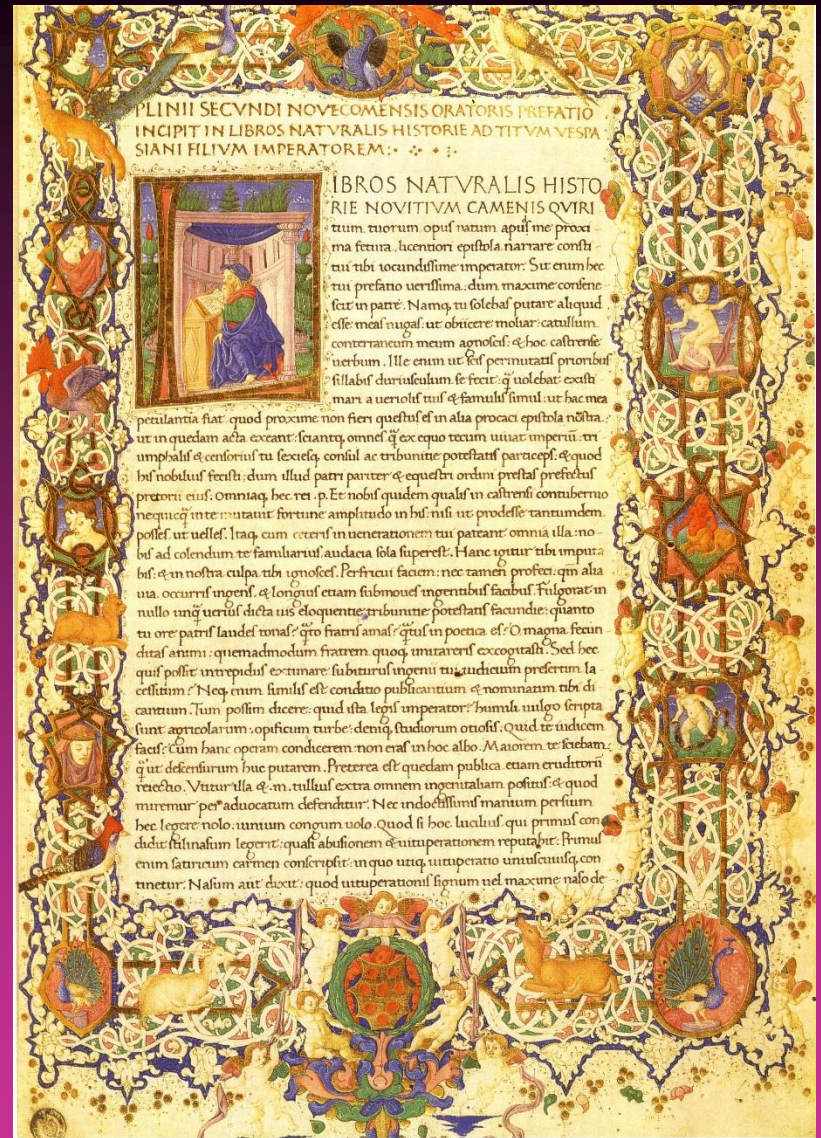 PLINII SECVNDI NOVECOMENSIS ORATORIS PREFATIO
INCIPIT IN LIBROS NATVRALIS HISTORIE AD TITVM VESPA
SIANI FILIVM IMPERATOREM:
LIBROS NATVRALIS HISTO
RIE NOVITIVM CAMENIS QVIRI
tium tuorum opus natum apud me proxi
ma fetura licentiori epistola narrare consti
tui tibi iocundissime imperator. Sit enim hec
tui prefatio uerissima: dum maxime conséne
scit in patre. Namq; tu solebas putare aliquid
esse meas nugas: ut obiicere moliar catullum
conterraneum meum agnoscis: & hoc castrense
uerbum. Ille enim ut scis permutatis prioribus
sillabis duriusculum se fecit: q̃ uolebat existi
mari a ueriolis tuis & famulis simul: ut hac mea
petulantia fiat quod proxime non fieri questus es in alia procaci epistola nostra:
ut in quedam acta exeant: sciantq; omnes q̃ ex equo tecum uiuat imperiũ: tri
umphalis & censorius tu sexiesq; consul ac tribunitie potestatis particeps: & quod
his nobilius fecisti: dum illud patri pariter & equestri ordini prestas prefectus
pretorii eius: Omniaq; hec rei .p. Et nobis quidem qualis in castrensi contubernio
nequicq̃ in te mutauit fortune amplitudo in his: nisi ut prodesse tantumdem
posses ut uelles. Itaq; cum ceteris in uenerationem tui pateant omnia illa: no
bis ad colendum te familiarius audacia sola superest. Hanc igitur tibi imputa
bis: & in nostra culpa tibi ignosces. Perfricui faciem: nec tamen profeci: qm̃ alia
uia occurris ingens: & longius etiam submoues ingentibus facibus. Fulgorat in
nullo unq̃ uerius dicta uis eloquentie: tribunitie potestatis facundie: quanto
tu ore patris laudes tonas: q̃to fratris amas: q̃tus in poetica es? O magna fecun
ditas animi: quemadmodum fratrem quoq; imitareris excogitasti. Sed hec
quis possit intrepidus extimare: subiturus ingenii tui iudicium presertim la
cessitum? Neq; enim similis est conditio publicantium & nominatim tibi di
cantium. Tum possim dicere: quid ista legis imperator? humili uulgo scripta
sunt agricolarum: opificum turbe: deniq; studiorum otiosis: Quid te iudicem
facis? Cum hanc operam condicerem: non eras in hoc albo. Maiorem te sciebam
q̃ ut descensurum huc putarem. Preterea est quedam publica etiam eruditorũ
reiectio. Vtitur illa & .m. tullius extra omnem ingenii aliam positus: & quod
miremur per aduocatum defenditur. Nec indoctissimis manium persium
hec legere nolo: iunium congum uolo. Quod si hoc lucilius qui primus con
didit stili nasum legerit: quasi abusionem & uituperationem reputabit: Primus
enim satiricum carmen conscripsit: in quo utiq; uituperatio uniuscuiusq; con
tinetur. Nasum aut dixit: quod uituperationis signum uel maxime naso de